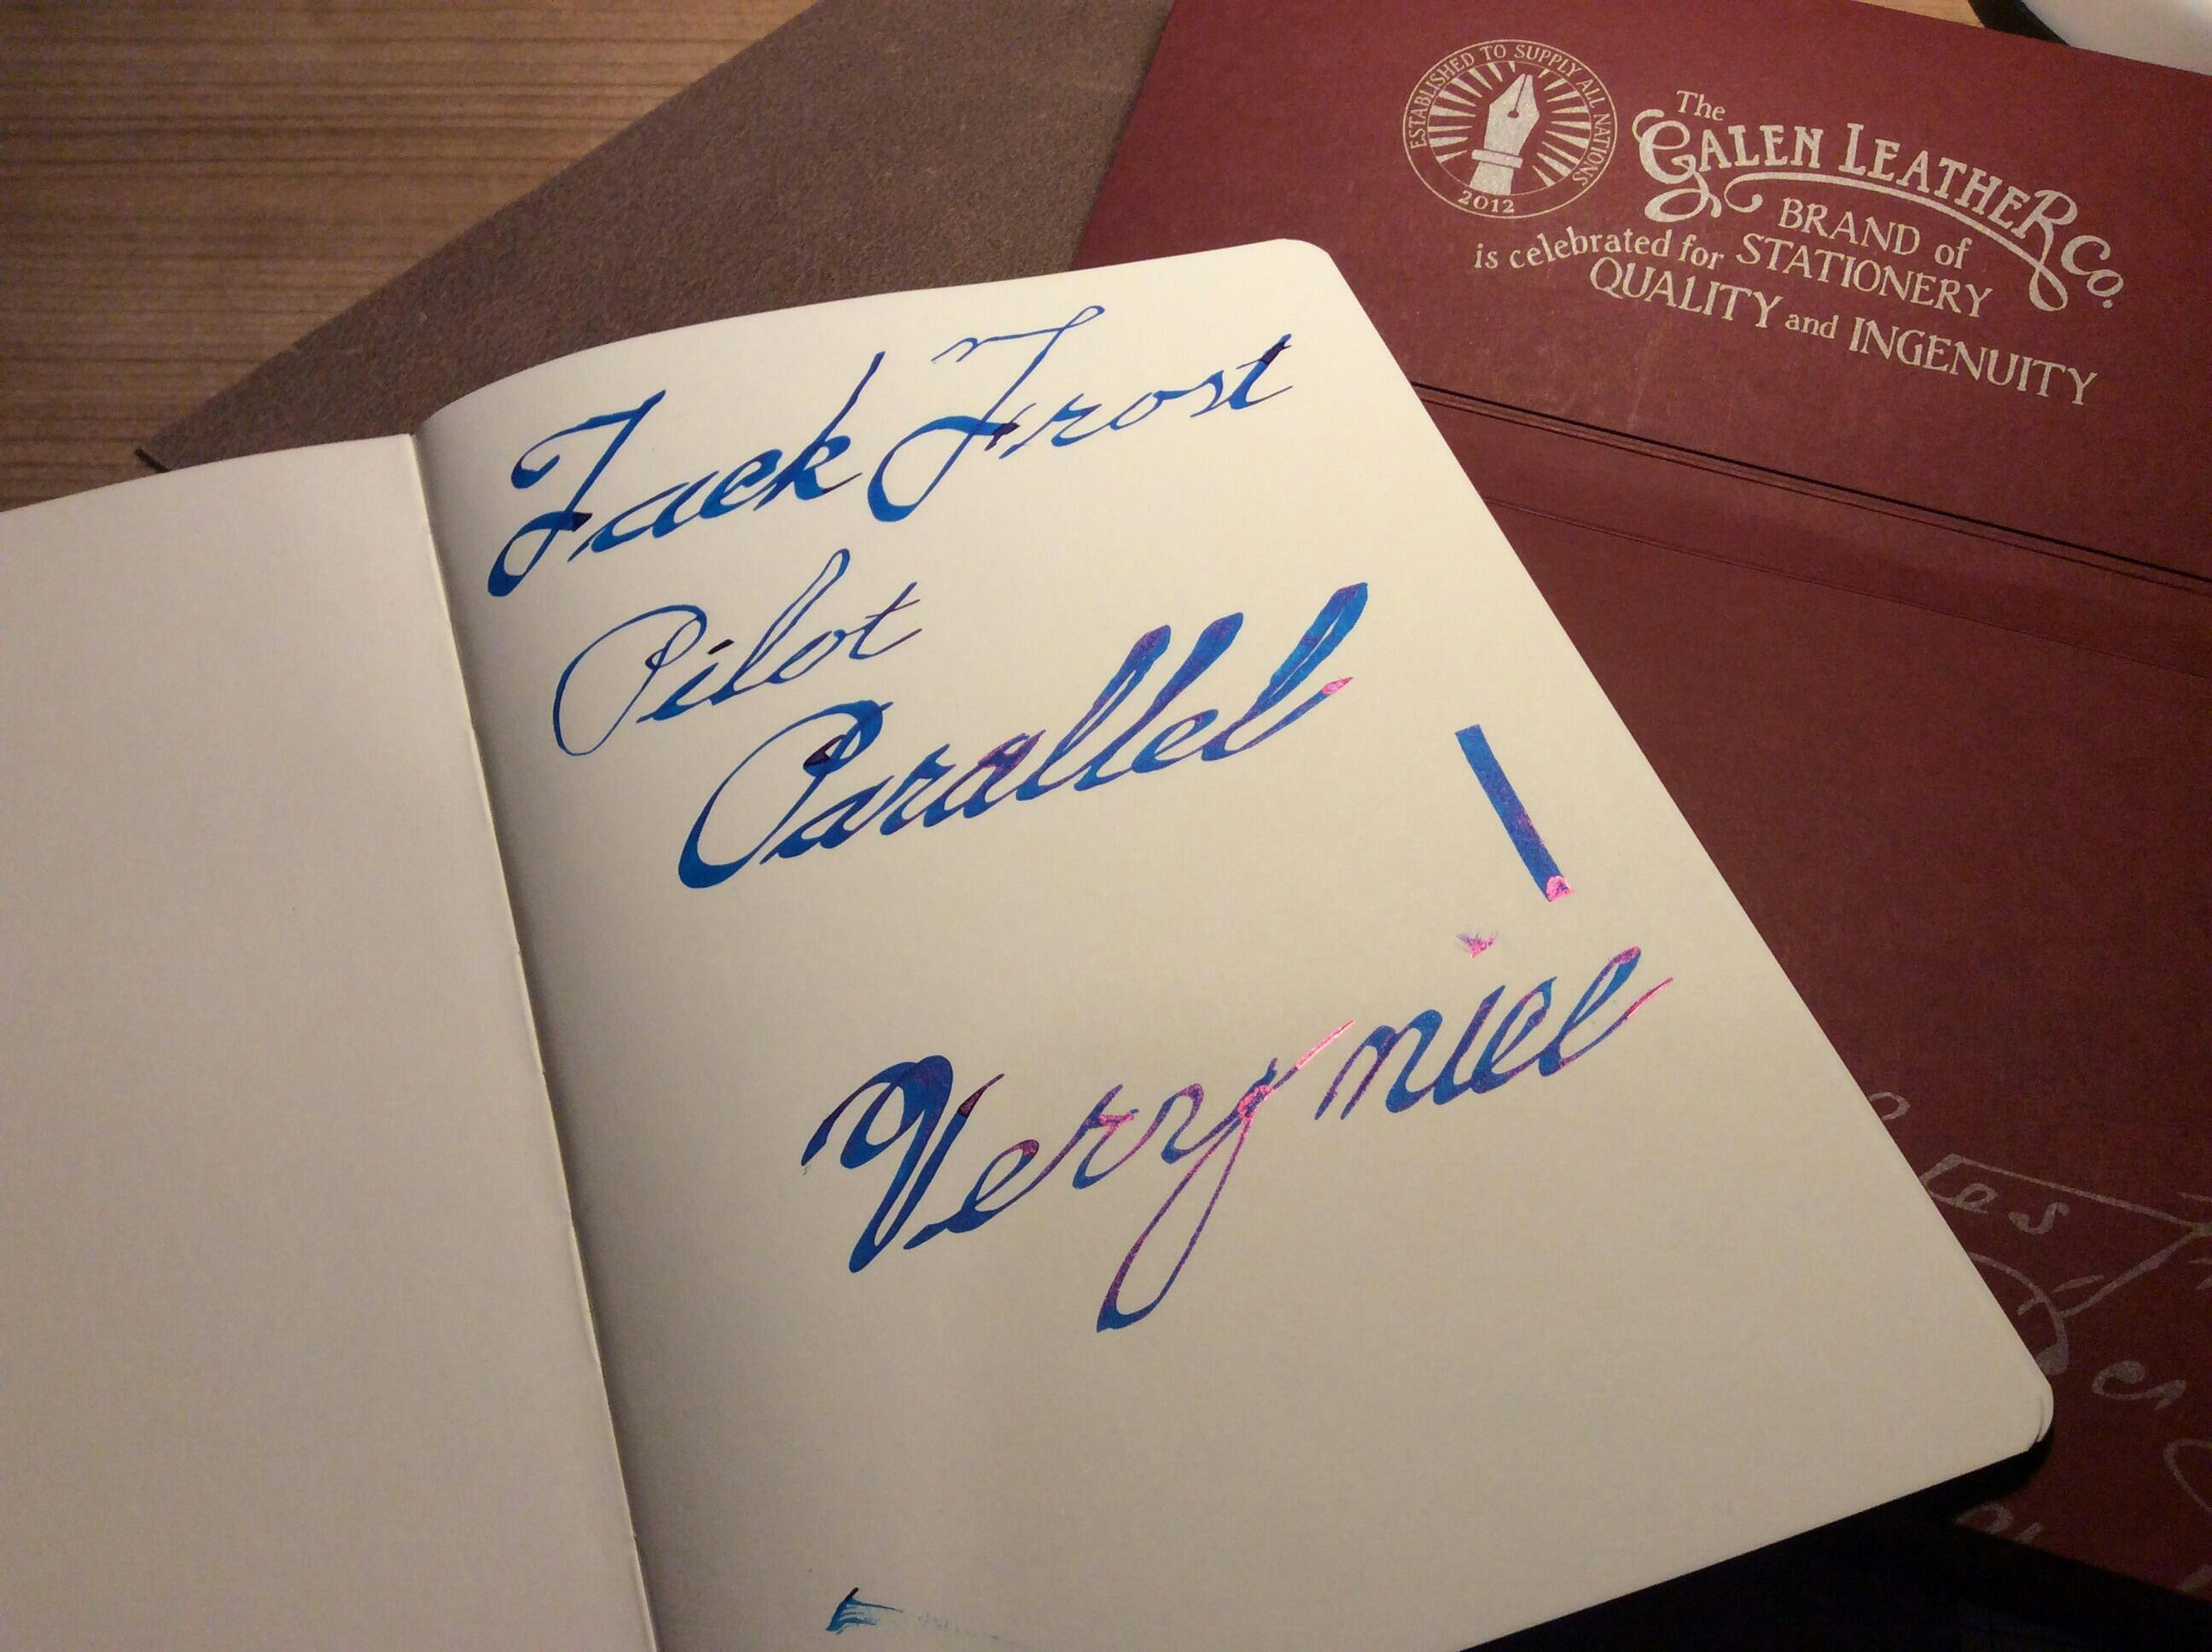 ESTABLISHED TO SUPPLY ALL NATIONS
2012
The
GALEN LEATHER Co.
BRAND of
is celebrated for STATIONERY
QUALITY and INGENUITY
Jack Frost
Pilot
Parallel
Verry niel